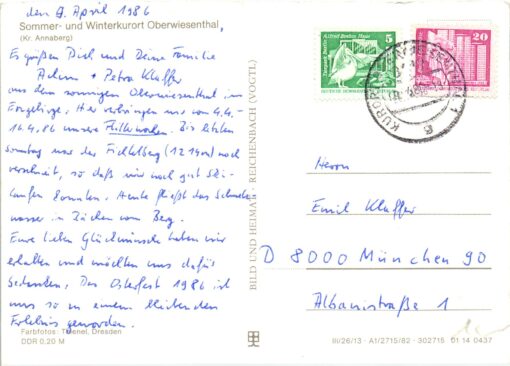 den 9. April 1986
Sommer- und Winterkurort Oberwiesenthal,
(Kr. Annaberg)
Es grüßen Dich und Deine Familie
Achim + Petra Klaffer
aus dem sonnigen Oberwiesenthal im
Erzgebirge. Hier verbringen wir vom 4.4.-
16.4.86 unsere Flitterwochen. Bis letzten
Sonntag war der Fichtelberg (1214m) noch
verschneit, so daß wir noch gut Ski-
laufen konnten. Heute fließt das Schmelz-
wasser in Bächen vom Berg.
Eure lieben Glückwünsche haben wir
erhalten und möchten uns dafür
bedanken. Das Osterfest 1986 ist
uns so zu einem bleibenden
Erlebnis geworden.
Farbfotos: Thienel, Dresden
DDR 0,20 M
BILD UND HEIMAT REICHENBACH (VOGTL)
Tierpark Berlin
Alfred-Brehm-Haus
5
20
KURORT OBERWIESENTHAL 1
Herrn
Emil Klaffer
D 8000 München 90
Albanistraße 1
III/26/13 · A1/2715/82 · 302715 01 14 0437